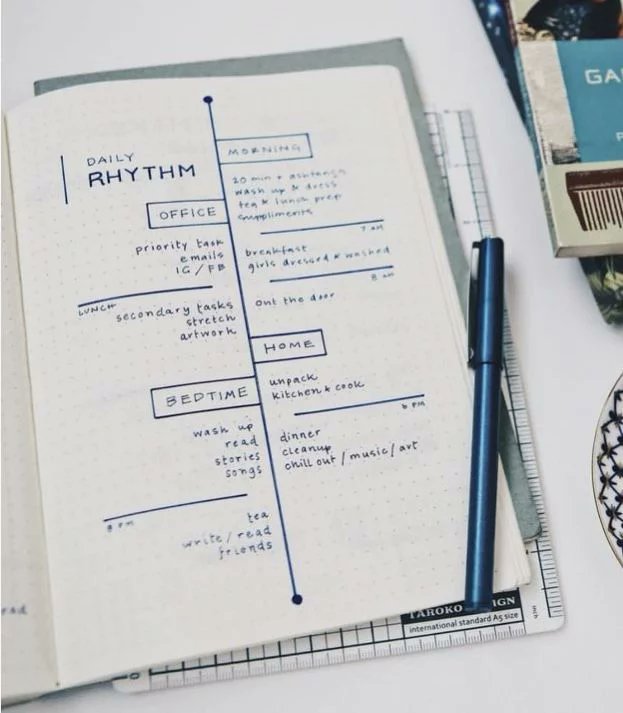 DAILY
RHYTHM
MORNING
20 min + ashtanga
wash up & dress
tea & lunch prep
suppliments
7 am
breakfast
girls dressed & washed
8 am
out the door
OFFICE
priority task
emails
IG / FB
LUNCH
secondary tasks
stretch
artwork
HOME
unpack
kitchen & cook
6 PM
dinner
cleanup
chill out / music / art
BEDTIME
wash up
read
stories
songs
8 PM
tea
write / read
friends
GA
TAROKO
international standard A5 size